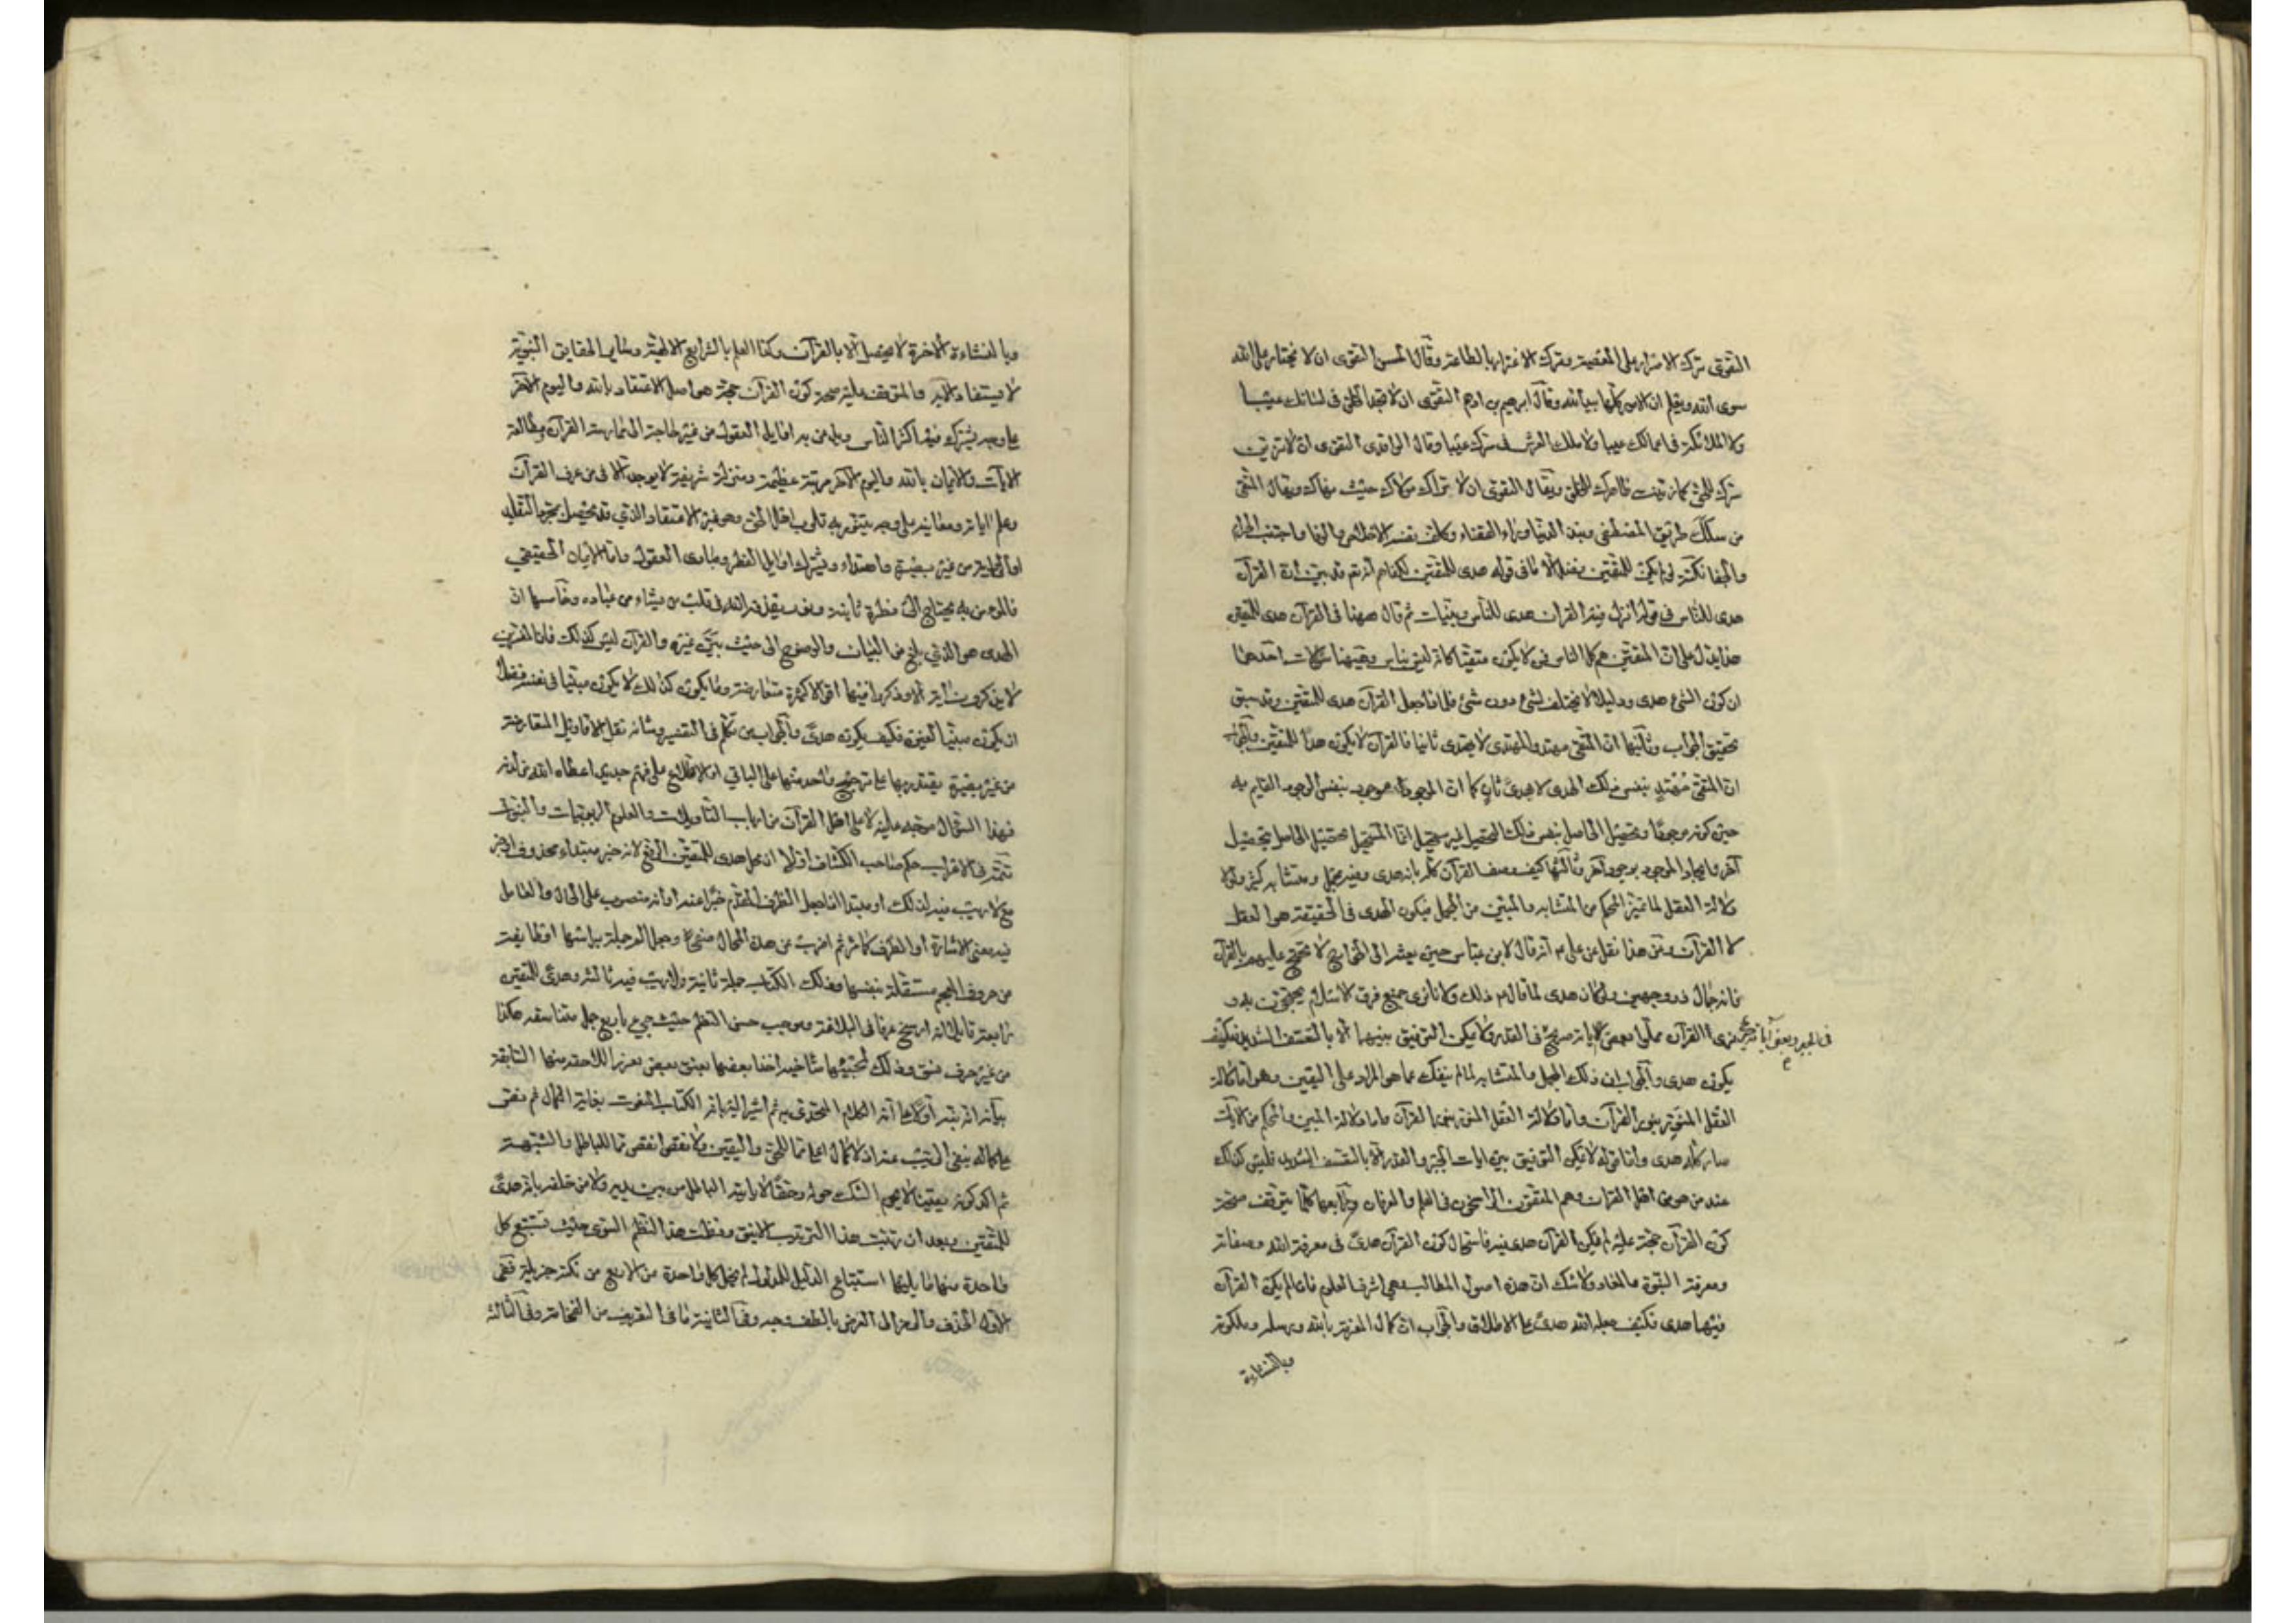 التقوى ترك الاصرار على المعصية وترك الاغترار بالطاعة وقال الحسن التقوى ان لا تختار على الله
سوى الله وتعلم ان الامور كلها بيد الله وقال ابرهيم بن ادهم التقوى ان لا تجد الخلق فى لسانك عيبا
ولا الملائكة فى اعمالك عيبا ولا ملك العرش فى سرك عيبا وقال الواقدى التقوى ان لا تزين
سرك للحق كما زينت ظاهرك للخلق ويقال التقوى ان لا يراك مولاك حيث نهاك ويقال المتقى
من سلك طريق المصطفى ونبذ الدنيا وراء القفاء وكلف نفسه الاخلاص والوفا واجتنب الحرام
والجفا نكتة لو لم يكن للمتقين فضل الا ما فى قوله هدى للمتقين لكفاهم لانه تع قد بين ان القرآن
هدى للناس فى قوله انزل فيه القرآن هدى للناس وبينات ثم قال ههنا فى القرآن هدى للمتقين
هذا يدل على ان المتقين هم كل الناس فمن لا يكون متقيا كانه ليس بناس وههنا سؤالات احدها
ان كون الشئ هدى ودليلا لا يختلف لشئ دون شئ فلماذا جعل القرآن هدى للمتقين وقد سبق
تحقيق الجواب وثانيها ان المتقى مهتد والمهتدى لا يهتدى ثانيا فالقرآن لا يكون هدًا للمتقين والجواب
ان المتقى مُهْتدٍ بنفس ذلك الهدى لا بهدىً ثانٍ كما ان الموجود موجود بنفس الوجود القايم به
حين كونه موجودًا وتحصيل الحاصل بنفس ذلك التحصيل ليس بمستحيل انما المستحيل تحصيل الحاصل بتحصيل
آخر وايجاد الموجود بوجود آخر وثالثها كيف وصف القرآن كله بانه هدى وفيه مجمل ومتشابه كثير ولولا
دلالة العقل لما تميز المحكم من المتشابه والمبين من المجمل فيكون الهدى فى الحقيقة هو العقل
لا القرآن ومن هذا نقل عن على ع انه قال لابن عباس حين بعثه الى الخوارج لا تحتج عليهم بالقرآن
فانه حمال ذو وجهين ولو كان هدى لما قال ع ذلك ولانا نرى جميع فرق الاسلام يحتجون به و
نرى القرآن مملوا بعض اياته صريح فى القدر ولا يمكن التوفيق بينهما الا بالتعسف الشديد فكيف
فى الجبر وبعض آياته صريح
يكون هدى والجواب ان ذلك المجمل والمتشابه لما لم ينفك عما هو المراد على اليقين وهو اما دلالة
العقل المنور بنور القرآن واما دلالة المبين والمحكم من الايات
صار كله هدى واما قوله لا يمكن التوفيق بين ايات الجبر والقدر الا بالتعسف الشديد فليس كذلك
عند من هو من اهل القرآن وهم المتقون الراسخون فى العلم والعرفان ورابعها كلما يتوقف صحة
كون القرآن حجة عليه لم يكن القرآن هدى فيه فاستحال كون القرآن هدىً فى معرفة الله وصفاته
ومعرفة النبوة والمعاد ولا شك ان هذه اصول المطالب وهى اشرف العلوم فاذا لم يكن القرآن
فيها هدى فكيف جعله الله هدىً على الاطلاق والجواب ان كمال المعرفة بالله ورسله وملكوته
وبالنشاءة
وبالنشاءة الاخرة لا يحصل الا بالقرآن وكذا العلم بالشرايع الالهية وساير الحقايق النبوية
لا يستفاد الا به والمتوقف عليه صحة كون القرآن حجة هو اصل الاعتقاد بالله واليوم الاخر
على وجه يشترك فيه اكثر الناس من غير حاجة الى ممارسة القرآن ومطالعة
الآيات والايمان بالله واليوم الآخر مرتبة عظيمة ومنزلة شريفة لا يوجد الا فى من عرف القرآن
وعلم اياته ومعانيه على وجه يتنور به قلوب اهل الحق وهو غير الاعتقاد الذي قد يحصل بمجرد التقليد
او من غير بصيرة واهتداء ويشترك اوايل الفطر ومبادى العقول واما الايمان الحقيقي
فالمومن به يحتاج الى فطرة ثانية ونور يقذفه الله فى قلب من يشاء من عباده وخامسها ان
الهدى هو الذي بلغ من البيان والوضوح الى حيث بيّن غيره والقرآن ليس كذلك فان المفسرين
لا يذكرون آية الا وذكروا فيها اقوالا كثيرة متعارضة وما يكون كذلك لا يكون مبينا فى نفسه فضلا
ان يكون مبينا لغيره فكيف يكون هدىً والجواب من تكلم فى التفسير وشانه نقل الاقاويل المتعارضة
من غير بصيرة يقتدر بها على ترجيح واحد منها على الباقي او الاطلاع على فهم جديد اعطاه الله من لدنه
فهذا السؤال متجه عليه لا على اهل القرآن من ارباب التأويلات والعلوم الربوبيات والنبوات
تتمة فى الاعراب حكم صاحب الكشاف اولا ان محل هدى للمتقين الرفع لانه خبر مبتداء محذوف او خبر
مع لا ريب فيه لذلك او مبتدا اذا جعل الظرف المقدم خبرًا عنه او انه منصوب على الحال والعامل
فيه معنى الاشارة او الظرف كما مر ثم اضرب عن هذه المحال صفحا وجعل الم جملة براسها او طايفة
من حروف المعجم مستقلة بنفسها وذلك الكتاب جملة ثانية ولا ريب فيه ثالثة وهدىً للمتقين
رابعة قايلا انه ارسخ عرقا فى البلاغة وموجب حسن النظم حيث جيء باربع جمل متناسقة هكذا
من غير حرف نسق وذلك لمجيئها متآخية اخذا بعضها بعنق بعض تعزيز اللاحقة منها السابقة
بيانه انه نبه اولا على انه الكلام المتحدى به ثم اشير اليه بانه الكتاب المنعوت بغاية الكمال ثم نفى
على كماله بنفى الريب عنه اذ لا كمال اعلى مما للحق واليقين ولا نقص انقص مما للباطل والشبهة
ثم اكد كونه يقينا لا يحوم الشك حوله وحقًا لا ياتيه الباطل من بين يديه ولا من خلفه بانه هدىً
للمتقين وبعد ان رتبت هذا الترتيب الانيق ونظمت هذا النظم السوى حيث تستتبع كل
واحدة منها ما يليها استتباع الدليل للمدلول لم يخل كل واحدة من الاربع من نكتة جزيلة ففى
الاولى الحذف والرمز الى الغرض بالطف وجه وفى الثانية ما فى التعريف من الفخامة وفى الثالثة